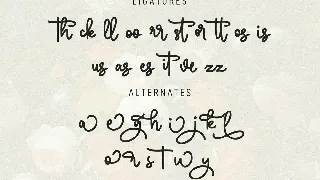 LIGATURES
th ck ll oo rr st or tt os is
us as es it ve zz
ALTERNATES
a e g h i j k l
o r s t w y